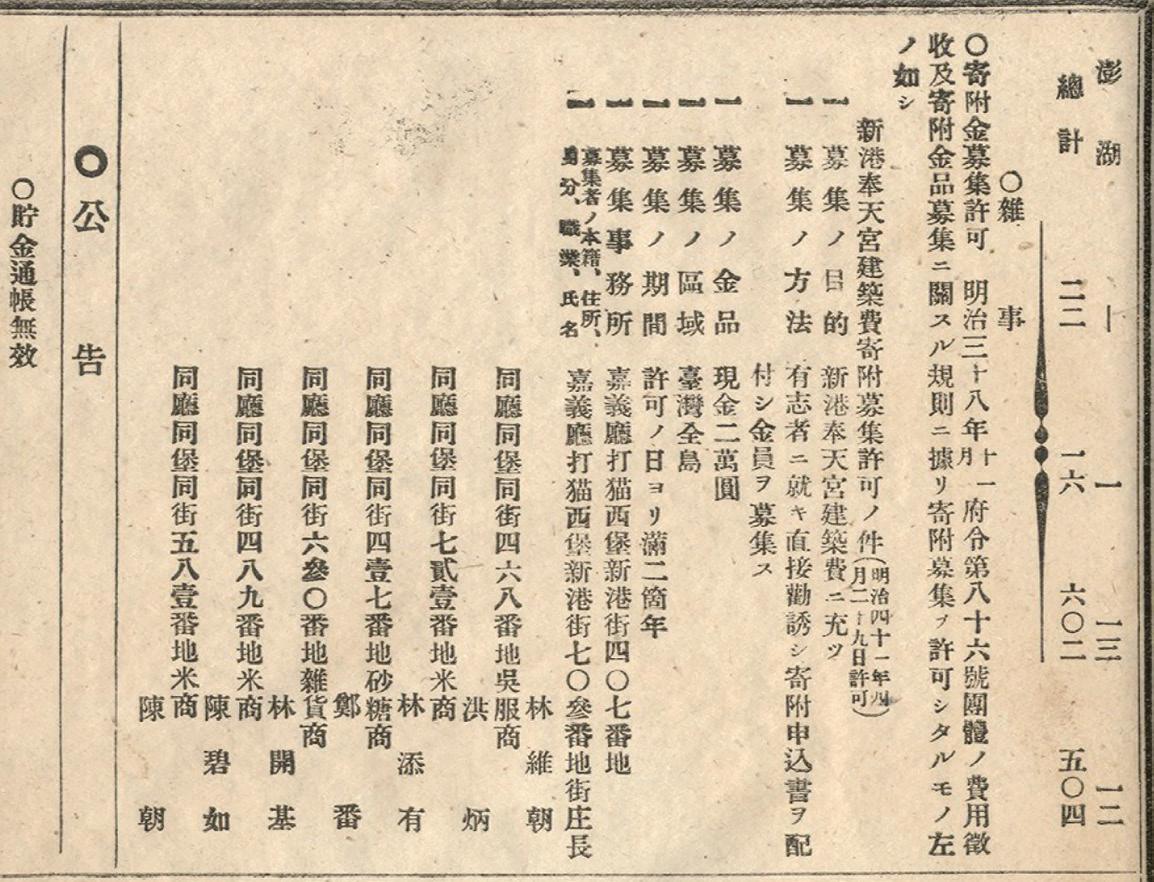 澎湖 ｜ 一 一三 一二
總計 二二 一六 六〇二 五〇四
〇雜事
〇寄附金募集許可 明治三十八年十一月府令第八十六號團體ノ費用徵
收及寄附金品募集ニ關スル規則ニ據リ寄附募集ヲ許可シタルモノ左
ノ如シ
新港奉天宮建築費寄附募集許可ノ件(明治四十一年四月二十九日許可)
一 募集ノ目的 新港奉天宮建築費ニ充ツ
一 募集ノ方法 有志者ニ就キ直接勸誘シ寄附申込書ヲ配
付シ金員ヲ募集ス
一 募集ノ金品 現金二萬圓
一 募集ノ區域 臺灣全島
一 募集ノ期間 許可ノ日ヨリ滿二箇年
一 募集事務所 嘉義廳打猫西堡新港街四〇七番地
一 募集者ノ本籍、住所、身分、職業、氏名 嘉義廳打猫西堡新港街七〇參番地街庄長
林維朝
同廳同堡同街四六八番地吳服商
洪炳
同廳同堡同街七貳壹番地米商
林添有
同廳同堡同街四壹七番地砂糖商
鄭番
同廳同堡同街六參〇番地雜貨商
林開基
同廳同堡同街四八九番地米商
陳碧如
同廳同堡同街五八壹番地米商
陳朝
〇公告
〇貯金通帳無效